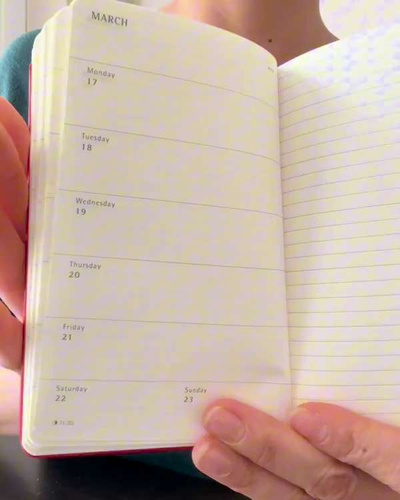 MARCH
Monday
17
Tuesday
18
Wednesday
19
Thursday
20
Friday
21
Saturday
22
Sunday
23